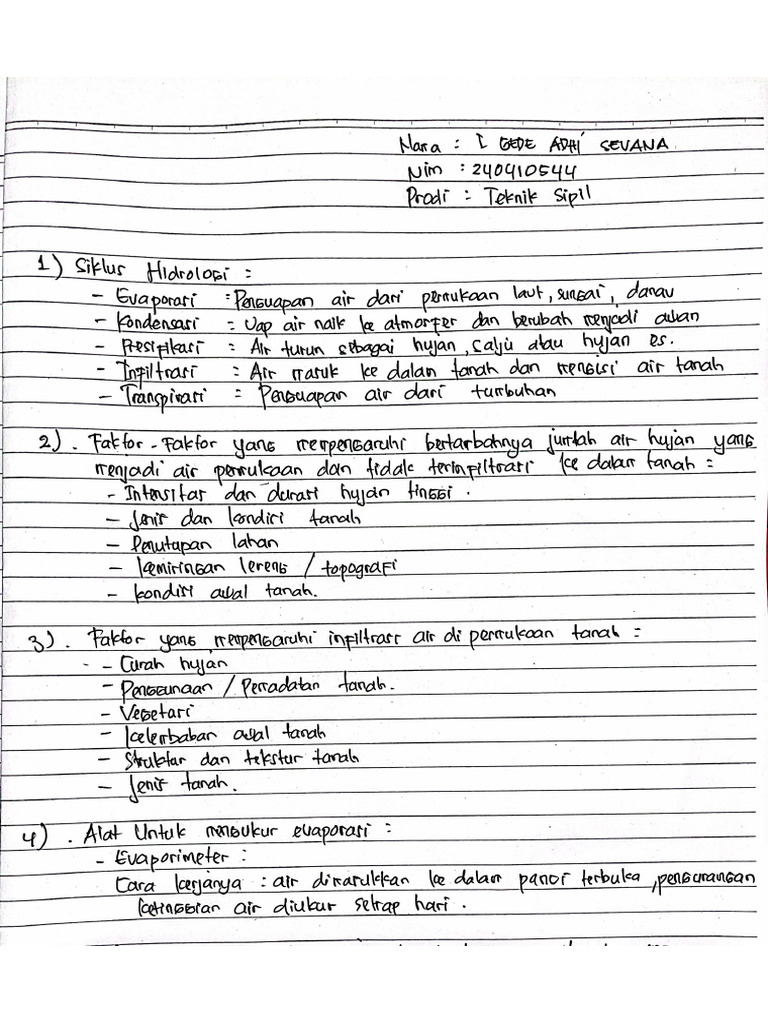 Nama : I GEDE ADHI SEVANA
Nim : 240410544
Prodi : Teknik Sipil
1) Siklus Hidrologi :
- Evaporasi : Penguapan air dari permukaan laut, sungai, danau
- Kondensasi : Uap air naik ke atmosfer dan berubah menjadi awan
- Presipitasi : Air turun sebagai hujan, salju atau hujan es.
- Infiltrasi : Air masuk ke dalam tanah dan mengisi air tanah
- Transpirasi : Penguapan air dari tumbuhan
2). Faktor-Faktor yang mempengaruhi bertambahnya jumlah air hujan yang
menjadi air permukaan dan tidak terinfiltrasi ke dalam tanah :
- Intensitas dan durasi hujan tinggi.
- Jenis dan kondisi tanah
- Penutapan lahan
- kemiringan lereng / topografi
- kondisi awal tanah.
3). Faktor yang mempengaruhi infiltrasi air di permukaan tanah :
- Curah hujan
- Penggunaan / Pemadatan tanah.
- Vegetasi
- kelembaban awal tanah
- Struktur dan tekstur tanah
- Jenis tanah.
4). Alat Untuk mengukur evaporasi :
- Evaporimeter :
Cara kerjanya : air dimasukkan ke dalam panci terbuka, pengurangan
ketinggian air diukur setiap hari.